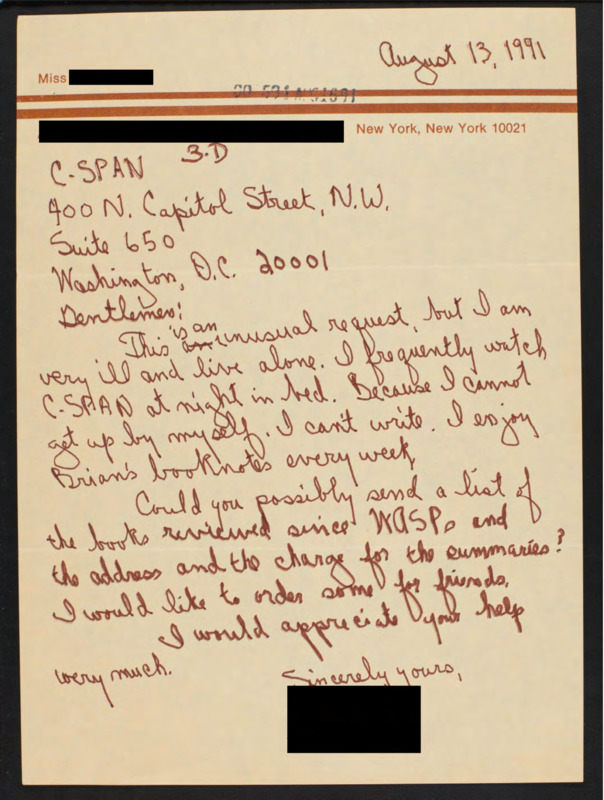 August 13, 1991
Miss
New York, New York 10021
3-D
C-SPAN
400 N. Capitol Street, N.W.
Suite 650
Washington, D.C. 20001
Gentlemen:
This is an unusual request, but I am
very ill and live alone. I frequently watch
C-SPAN at night in bed. Because I cannot
get up by myself, I can't write. I enjoy
Brian's booknotes every week,
Could you possibly send a list of
the books reviewed since WASPs and
the address and the charge for the summaries?
I would like to order some for friends.
I would appreciate your help
very much.
Sincerely yours,